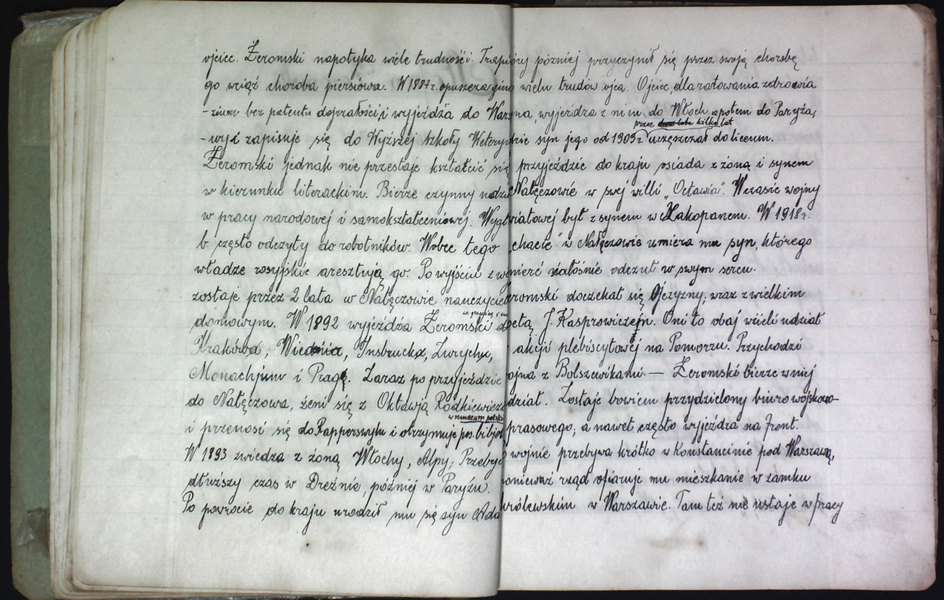 ojciec. Żeromski napotyka wiele trudności. Trapi
go wciąż choroba piersiowa. W 1887 r. opuszcza gim
-zium bez patentu dojrzałości, i wyjeżdża do Warsza
-wy i zapisuje się do Wyższej szkoły Weteryn
Żeromski jednak nie przestaje kształcić się
w kierunku literackim. Bierze czynny udzi
w pracy narodowej i samokształceniowej. Wygł
b. często odczyty do robotników. Wobec tego
władze rosyjskie aresztują go. Po wyjściu z w
zostaje przez 2 lata w Nałęczowie nauczyci
domowym. W 1892 wyjeżdża Żeromski d
Krakowa, Wiednia, Insbrucka, Zurychu,
Monachjum i Pragę. Zaraz po przyjeździe
do Nałęczowa, żeni się z Oktawją Rodkiewicz
w muzeum polsk
i przenosi się do Rapperswylu i otrzymuje pos. bibljot
W 1893 zwiedza z żoną Włochy, Alpy; Przeby
dłuższy czas w Dreźnie, później w Paryżu.
Po powrocie do kraju urodził mu się syn Ada
później przyczynił się przez swoją chorobę
wielu trudów ojca. Ojciec, dla ratowania zdrowia
na wyjeżdża z nim do Włoch, a potem do Paryża,
przez kilka lat
gdzie syn jego od 1909 r. uczęszczał do liceum.
przyjeździe do kraju osiada z żoną i synem
Nałęczowie w swej willi "Oktawia". W czasie wojny
światowej był z synem w Zakopanem. W 1918 r.
"chacie" w Nałęczowie umiera mu syn, którego
śmierć żałośnie odczuł w swym sercu.
romski doczekał się Ojczyzny, wraz z wielkim
poetą J. Kasprowiczem. Oni to obaj wzieli udział
akcji plebiscytowej na Pomorzu. Przychodzi
wojna z Bolszewikami — Żeromski bierze w niej
udział. Zostaje bowiem przydzielony biuro wojskowo-
prasowego, a nawet często wyjeżdża na front.
wojnie przebywa krótko w Konstancinie pod Warszawą,
ponieważ rząd ofiaruje mu mieszkanie w zamku
królewskim w Warszawie. Tam też nie ustaje w pracy